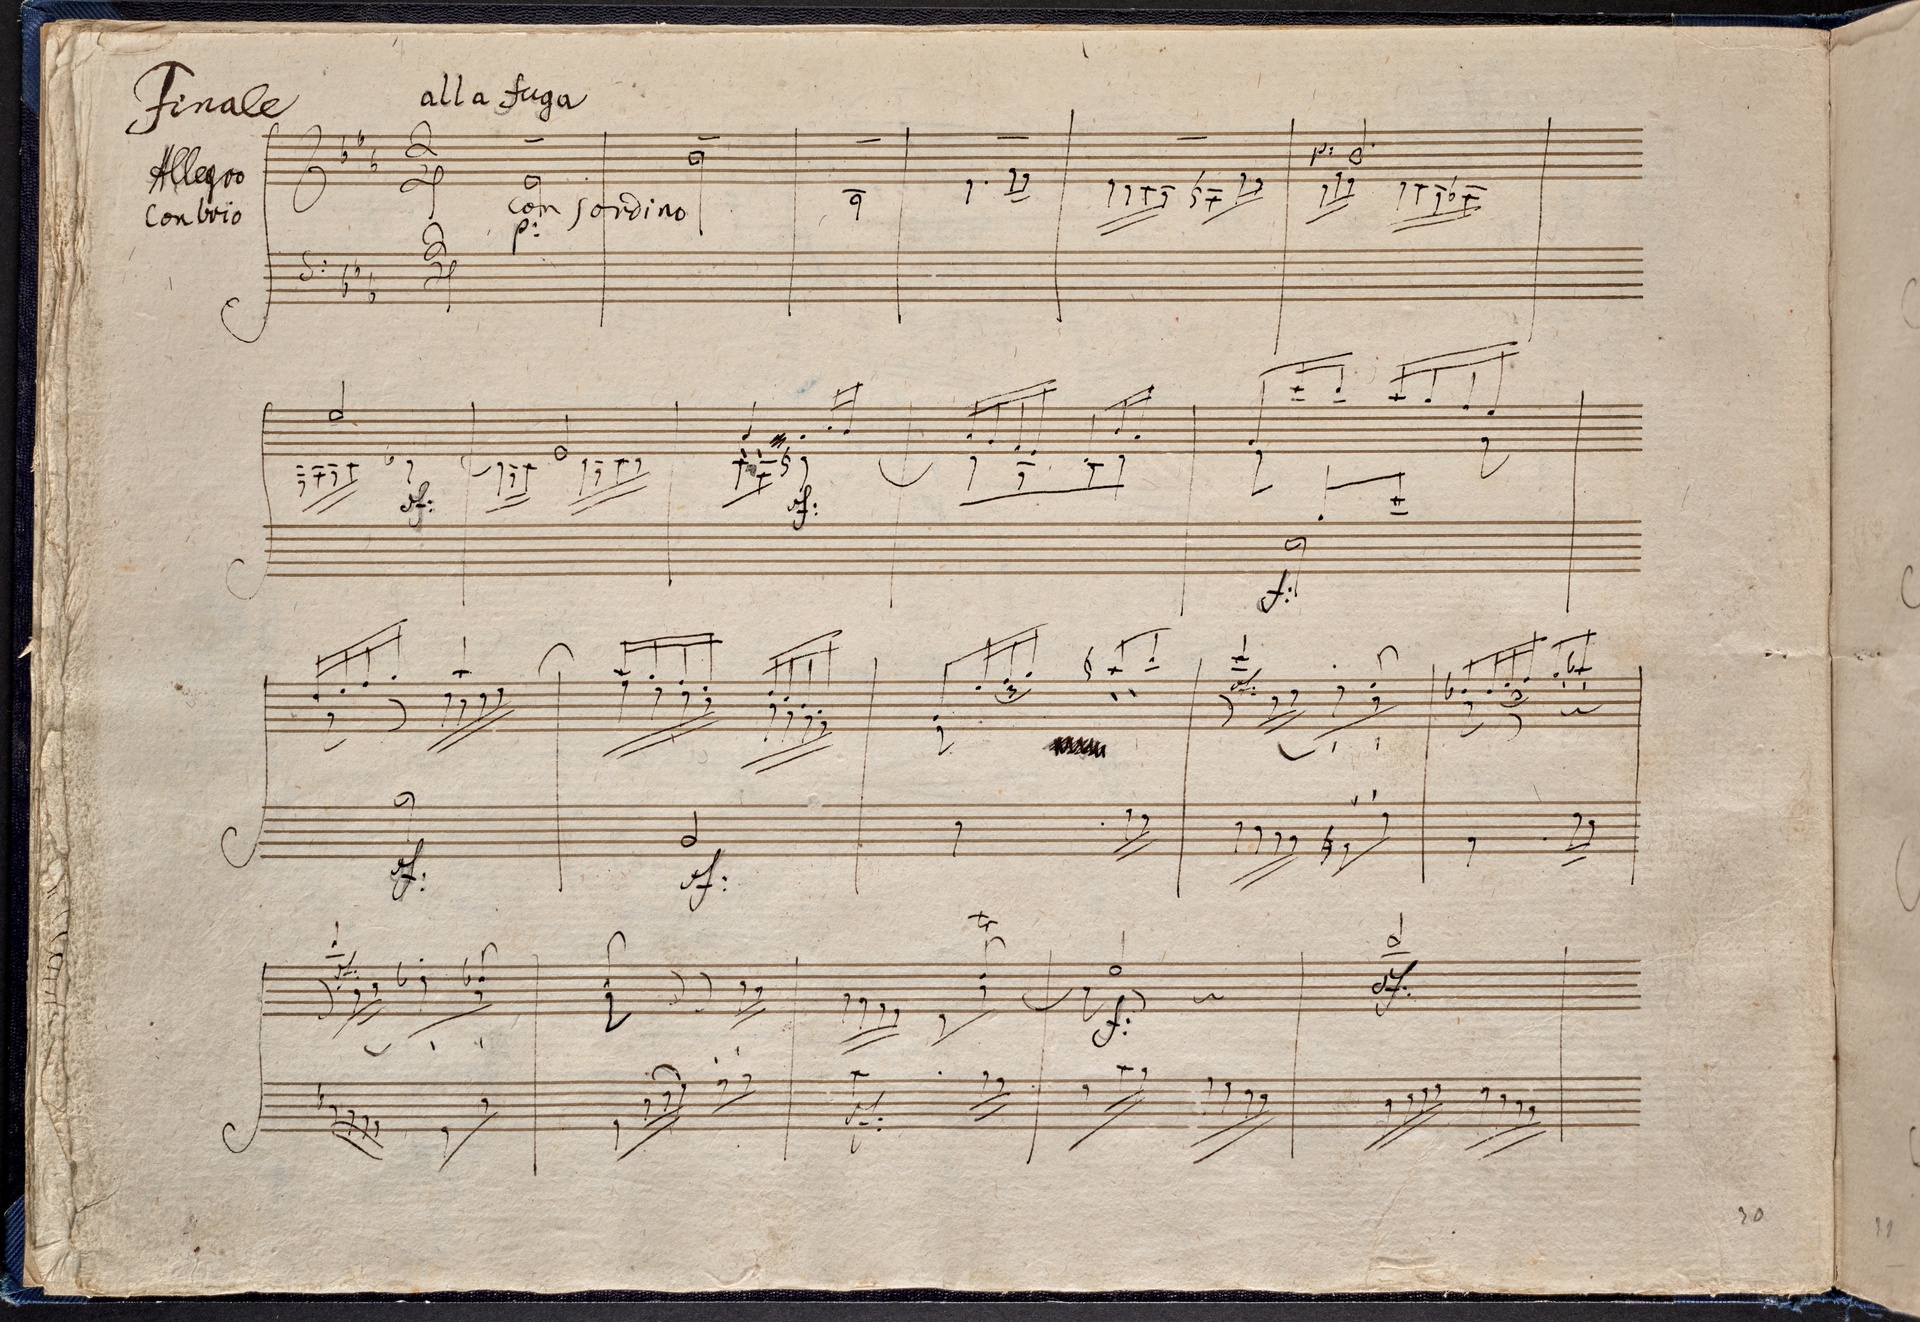 Finale alla fuga
Allegro
Con brio
p:
con sordino
p:
sf: sf:
f:
sf: sf:
tr
f: sf: